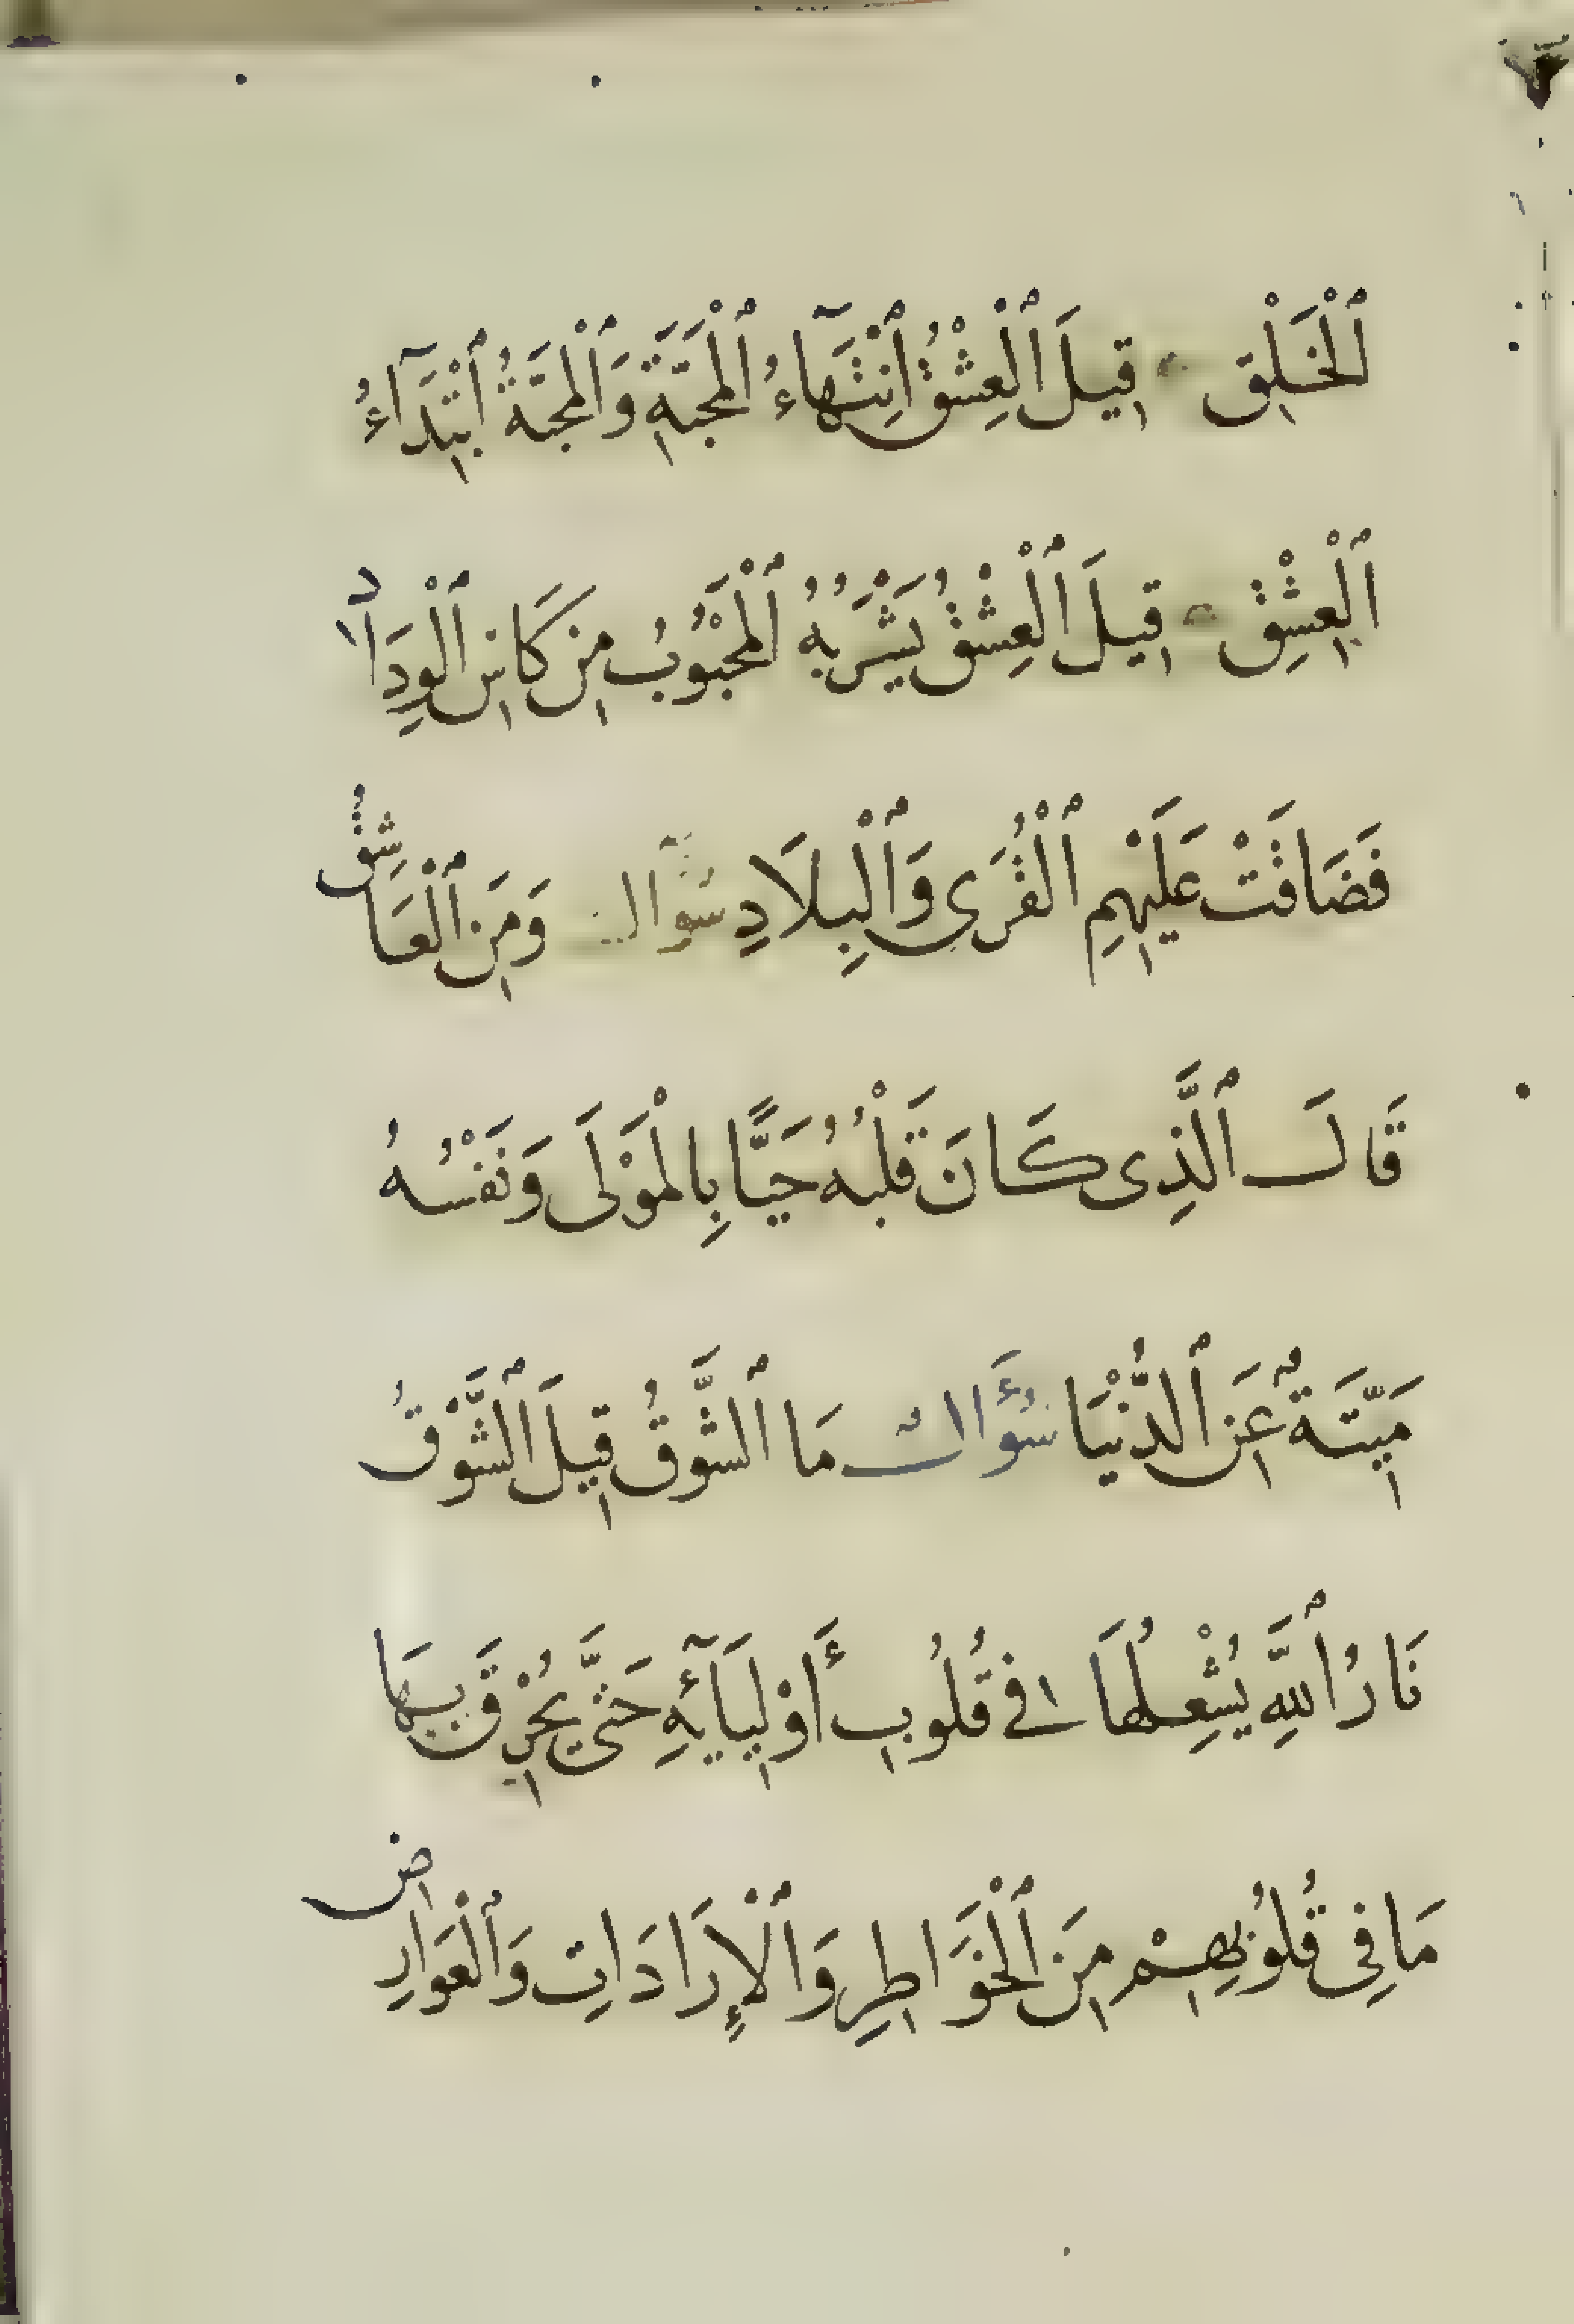 ٱلْخَلْقِ قِيلَ ٱلْعِشْقُ ٱنْتِهَآءُ ٱلْمَحَبَّةِ وَٱلْمَحَبَّةُ ٱبْتِدَآءُ
ٱلْعِشْقِ قِيلَ ٱلْعِشْقُ يَشْرَبُهُ ٱلْمَحْبُوبُ مِنْ كَاسِ ٱلْوِدَادِ
فَضَاقَتْ عَلَيْهِمِ ٱلْقُرَى وَٱلْبِلَادِ سُوَآل وَمَنِ ٱلْعَاشِقُ
قَالَ ٱلَّذِى كَانَ قَلْبُهُ حَيًّا بِالْمَوْلَى وَنَفْسُهُ
مَيِّتَةٌ عَنِ ٱلدُّنْيَا سُؤَال مَا ٱلشَّوْقُ قِيلَ ٱلشَّوْقُ
نَارُ ٱللَّهِ يُشْعِلُهَا فِى قُلُوبِ أَوْلِيَآئِهِ حَتَّى يُحْرِقَ بِهَا
مَا فِى قُلُوبِهِمْ مِنَ ٱلْخَوَاطِرِ وَٱلْإِرَادَاتِ وَٱلْعَوَارِضِ